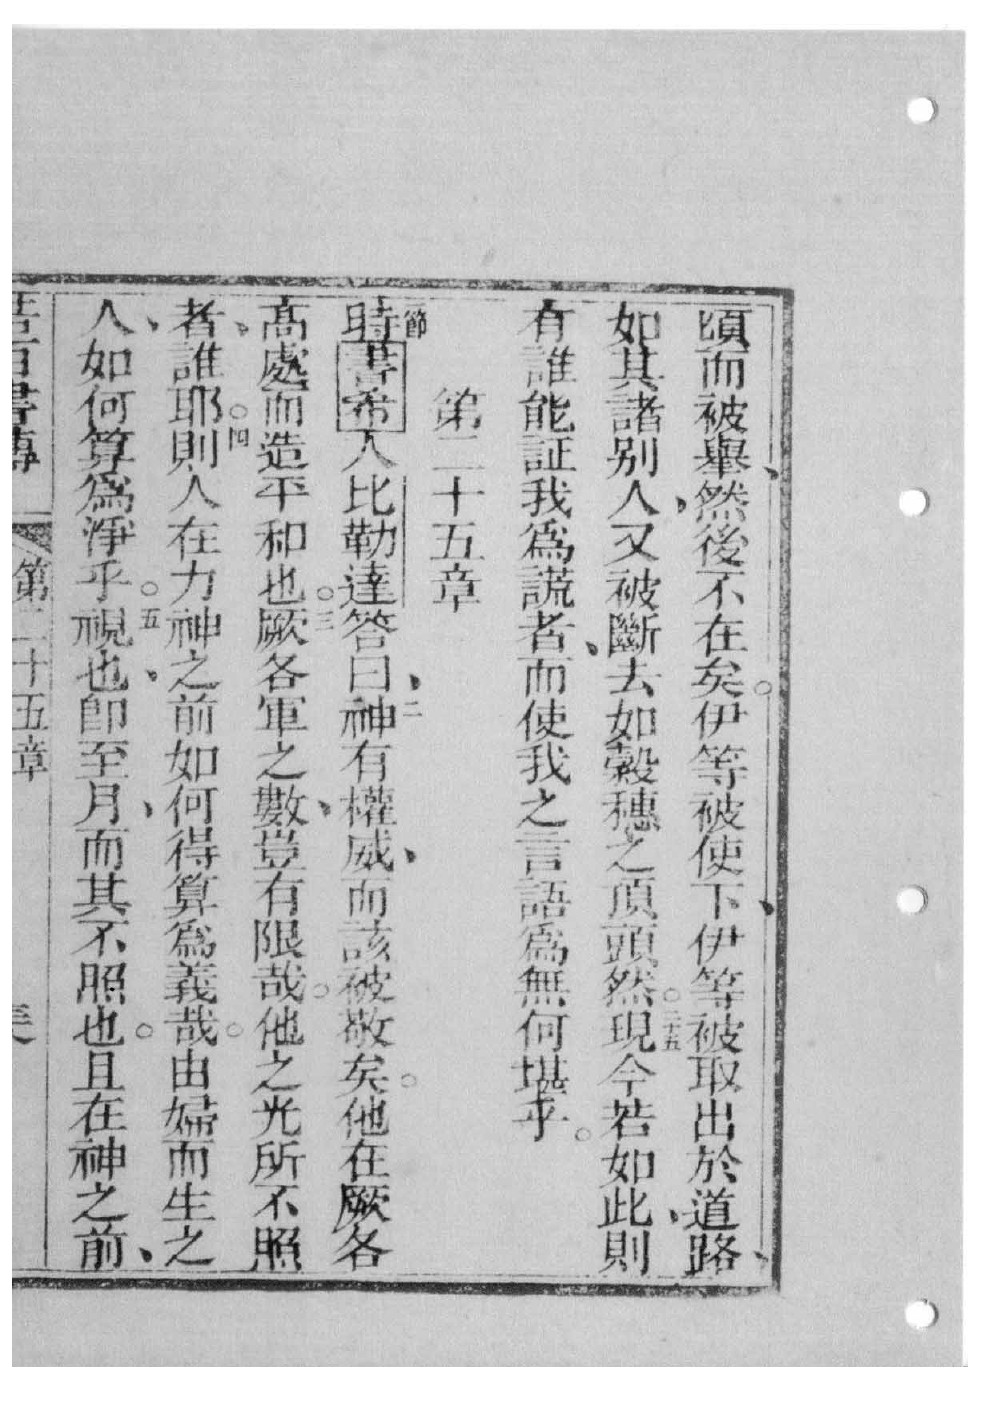 頃而被舉、然後不在矣。伊等被使下、伊等被取出於道路、
如其諸別人、又被斷去如穀穗之頂頭然。二十五現今若如此、則
有誰能証我爲謊者、而使我之言語爲無何堪乎。
第二十五章
節時書希人比勒達答曰、二神有權威、而該被敬矣。他在厥各
高處而造平和也。三厥各軍之數、豈有限哉。他之光所不照
者、誰耶。四則人在力神之前如何得算爲義哉。由婦而生之
人、如何算爲淨乎。五視也、即至月、而其不照也。且在神之前、
若百書傳 第二十五章